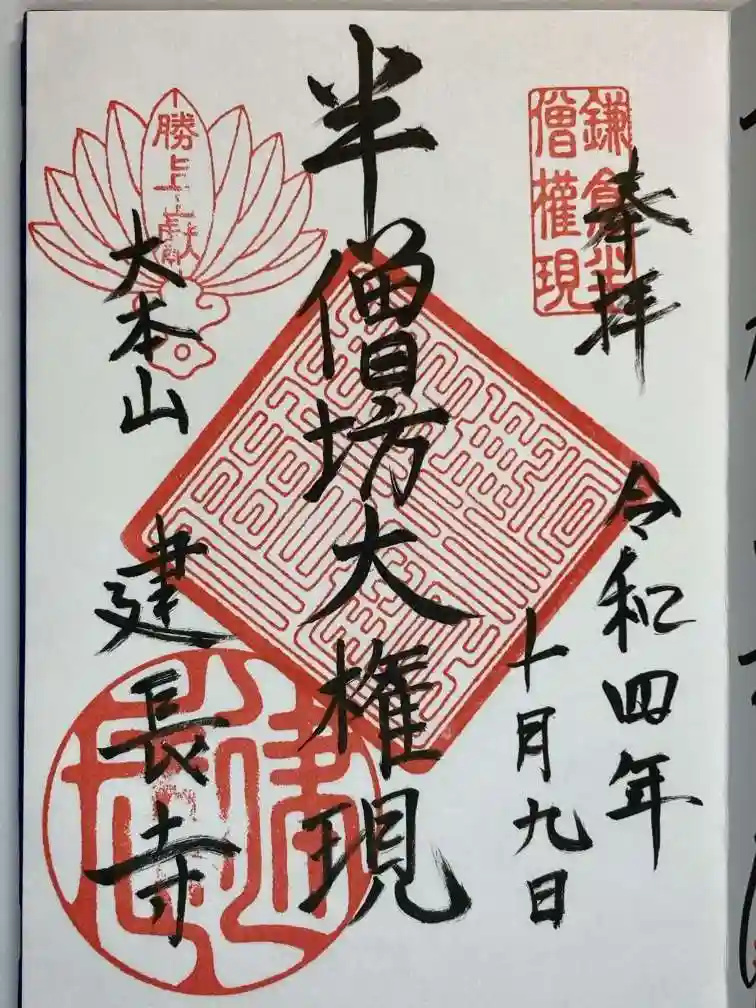 奉拝
令和四年
十月九日
鎌倉半
僧權現
半僧坊大権現
勝上嶽
大本山
建長寺